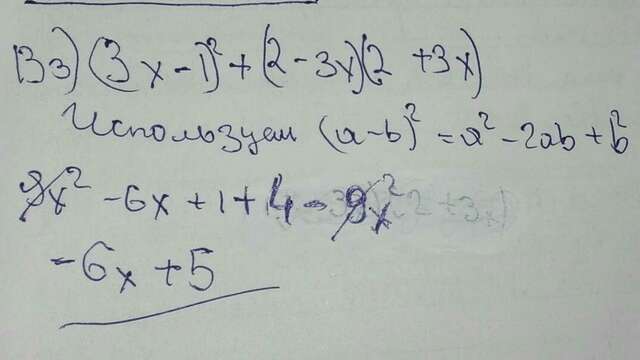 В3) (3x-1)²+(2-3x)(2+3x)
Используем (a-b)²=a²-2ab+b²
9x²-6x+1+4-9x²
-6x+5